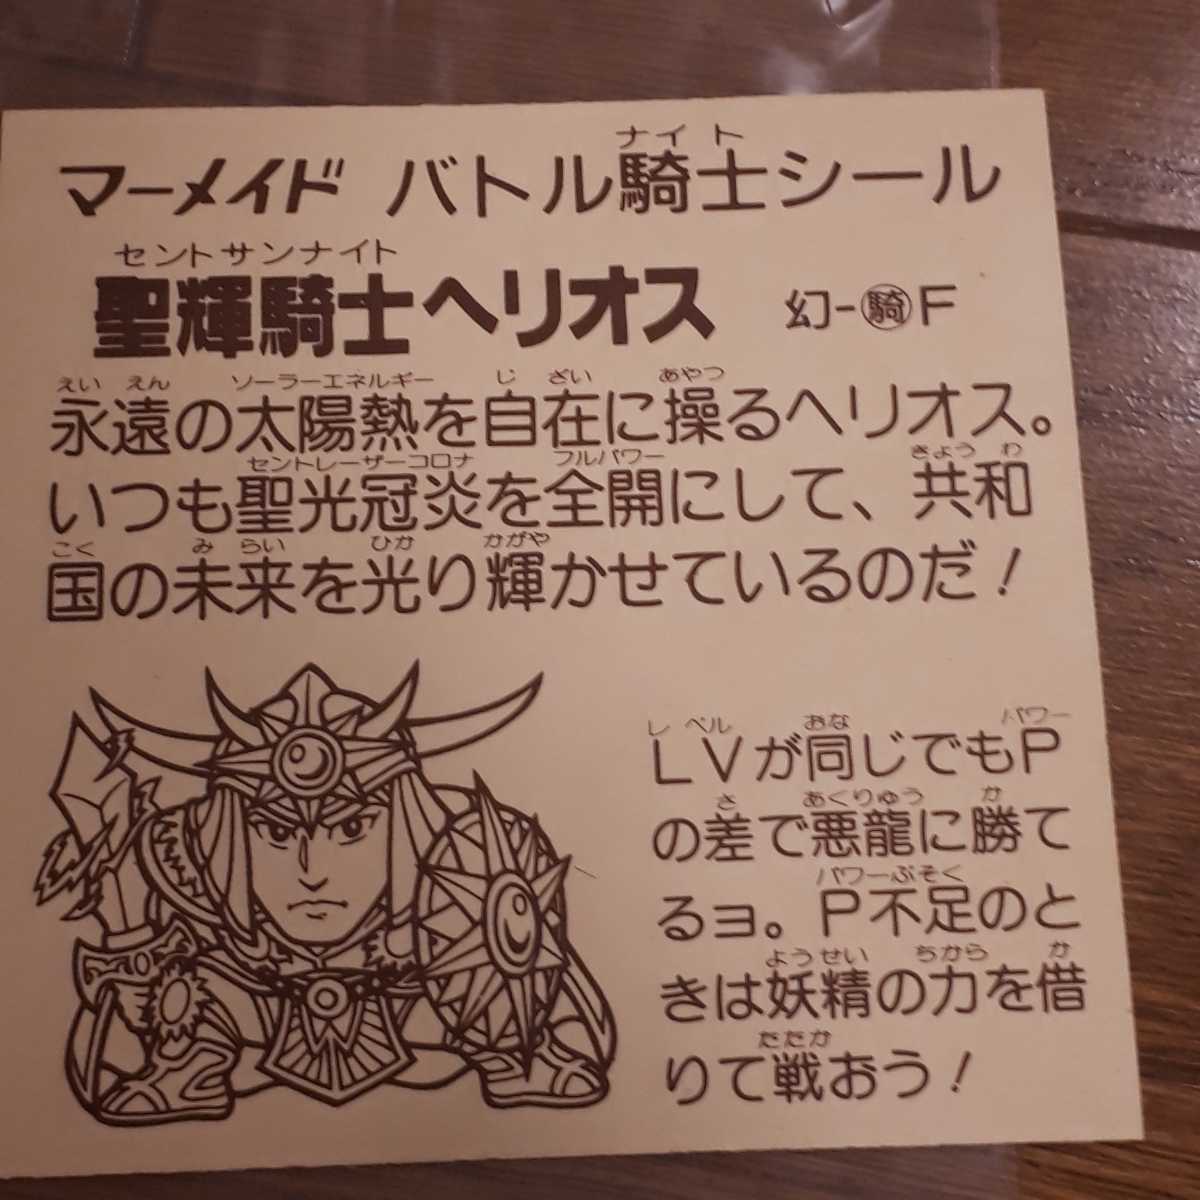 ナイト
マーメイド バトル騎士シール
セントサンナイト
聖輝騎士ヘリオス 幻-騎F
えい えん ソーラーエネルギー じ ざい あやつ
永遠の太陽熱を自在に操るヘリオス。
セントレーザーコロナ フルパワー きょう わ
いつも聖光冠炎を全開にして、共和
こく み らい ひか かがや
国の未来を光り輝かせているのだ！
レベル おな パワー
LVが同じでもP
さ あくりゅう か
の差で悪龍に勝て
パワーぶそく
るヨ。P不足のと
ようせい ちから か
きは妖精の力を借
たたか
りて戦おう！